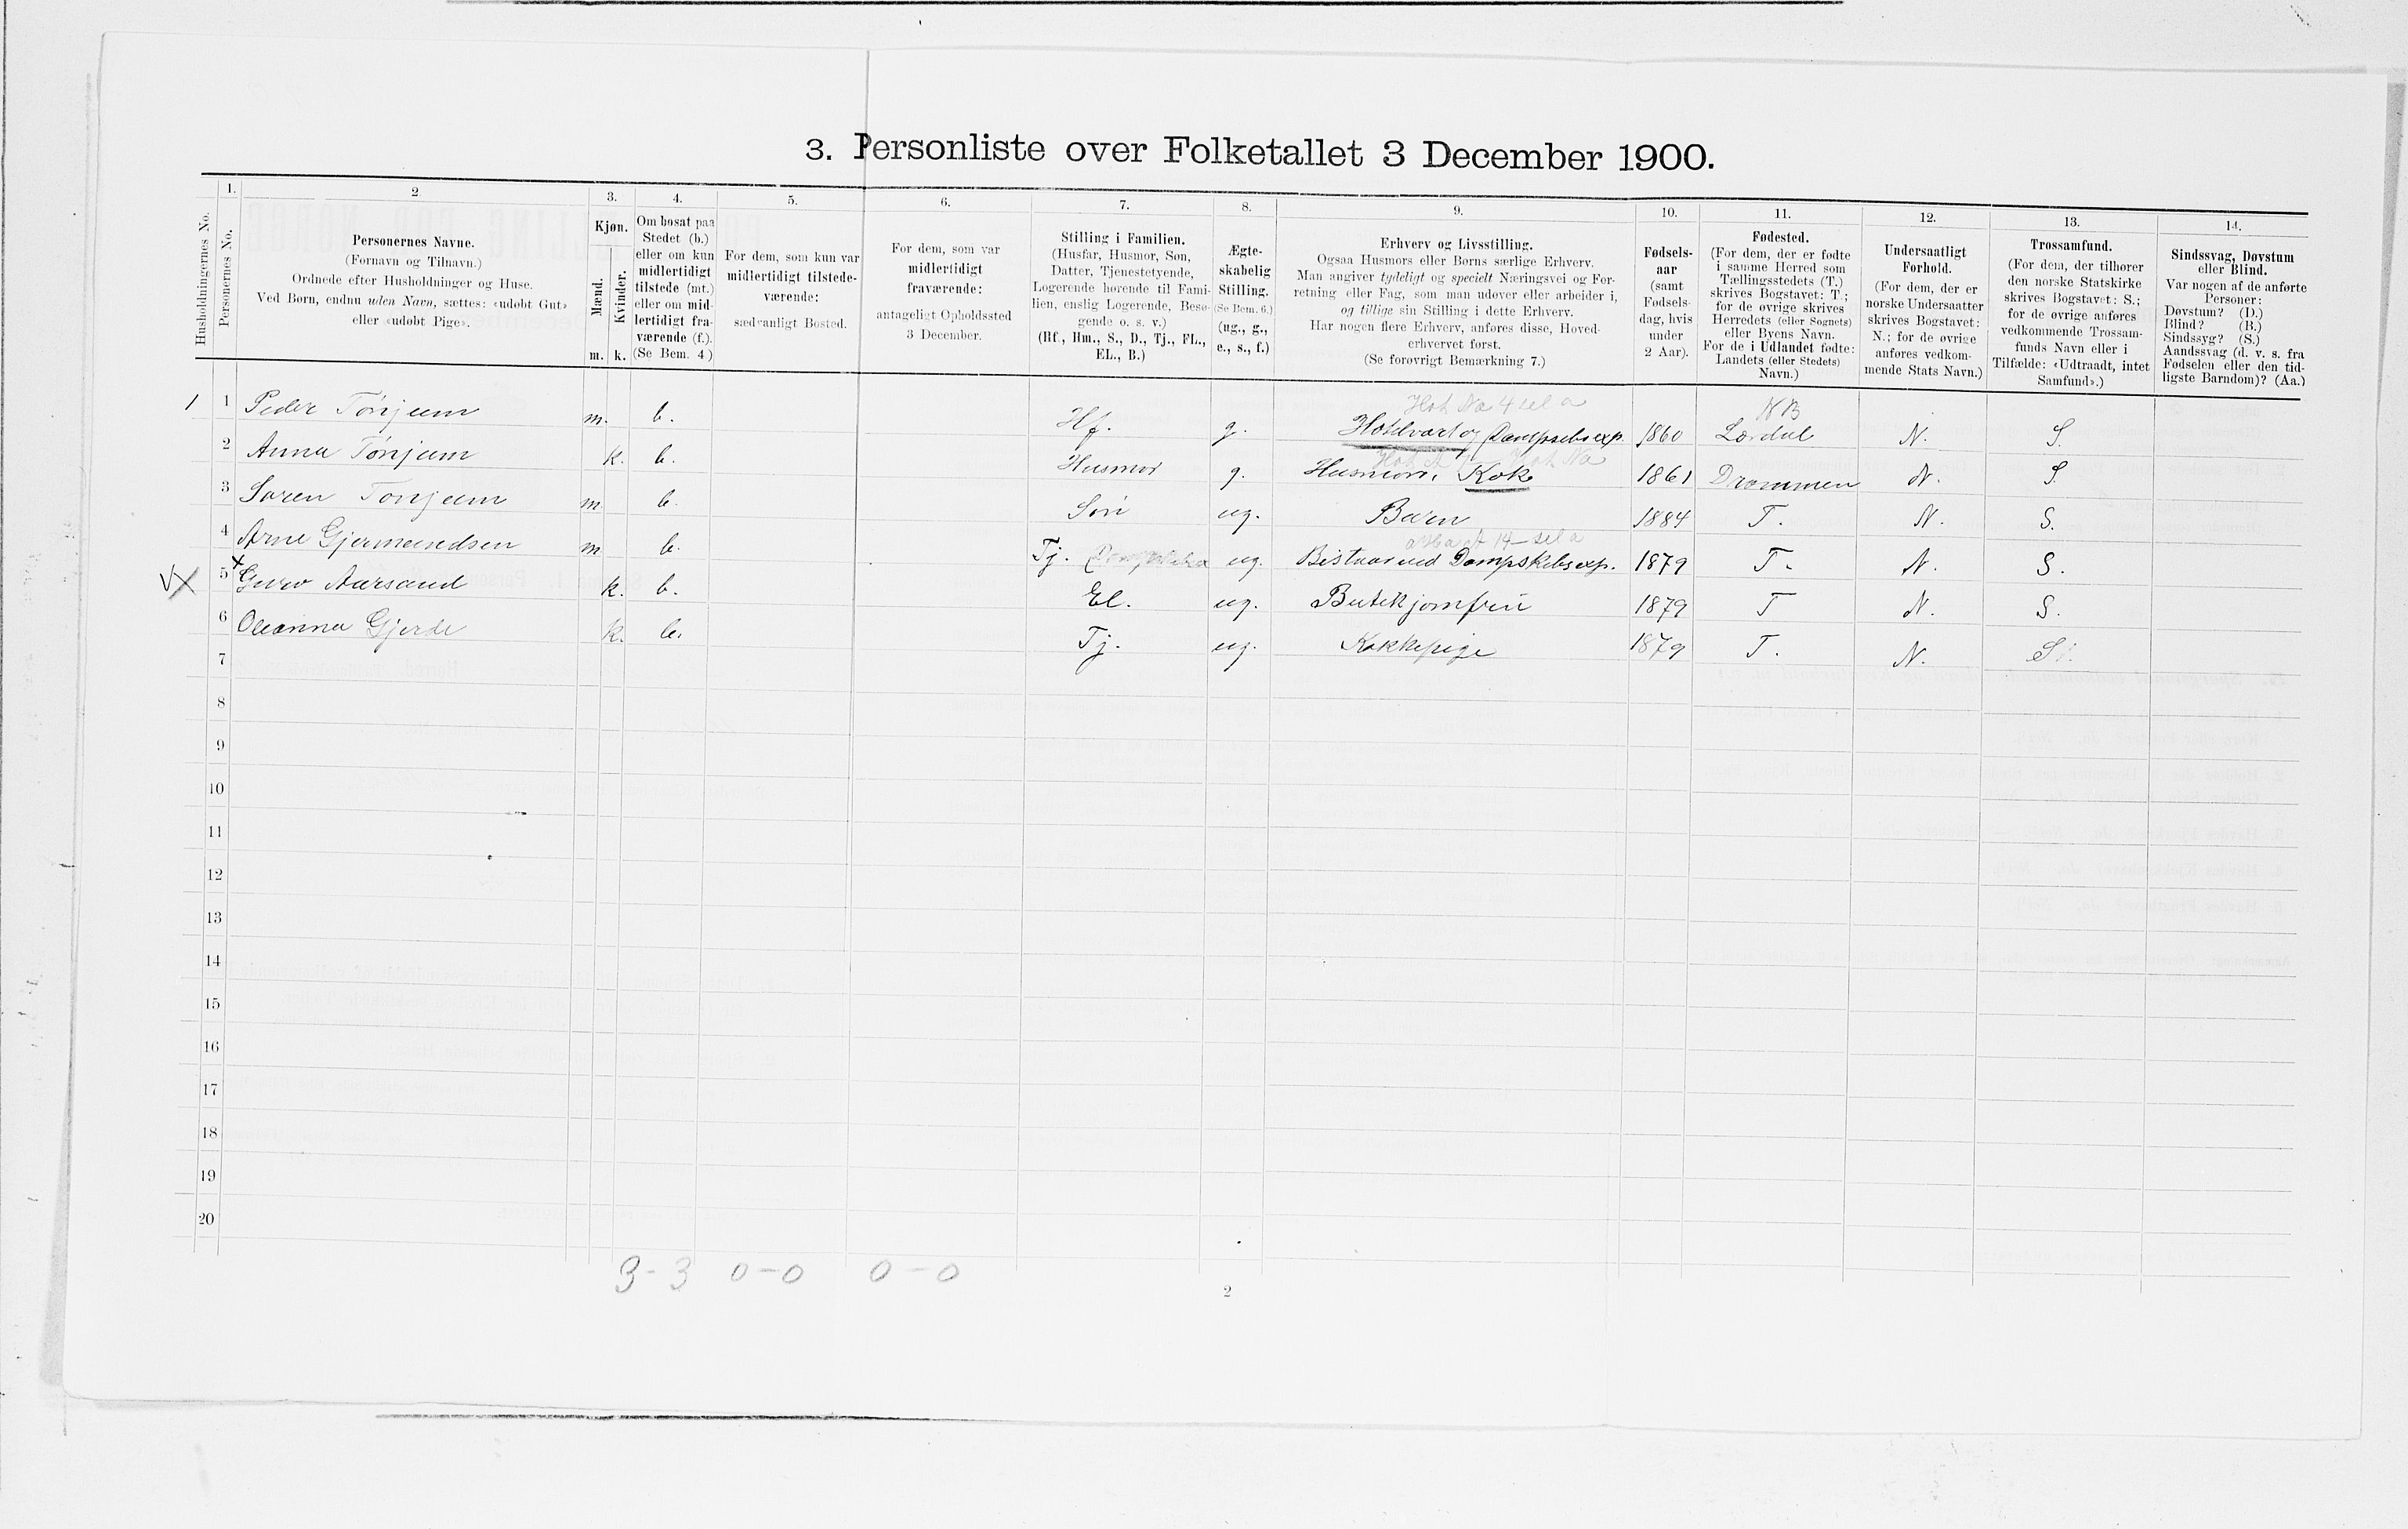 3. Personliste over Folketallet 3 December 1900.
1. 2. 3. 4. 5. 6. 7. 8. 9. 10. 11. 12. 13. 14.
Husholdningernes No.
Personernes No.
Personernes Navne.
(Fornavn og Tilnavn.)
Ordnede efter Husholdninger og Huse.
Ved Børn, endnu uden Navn, sættes: «udøbt Gut»
eller «udøbt Pige».
Kjøn.
Mænd.
Kvinder.
m. k.
Om bosat paa
Stedet (b.)
eller om kun
midlertidigt
tilstede (mt.)
eller om mid-
lertidigt fra-
værende (f.).
(Se Bem. 4)
For dem, som kun var
midlertidigt tilstede-
værende:
sædvanligt Bosted.
For dem, som var
midlertidigt
fraværende:
antageligt Opholdssted
3 December.
Stilling i Familien.
(Husfar, Husmor, Søn,
Datter, Tjenestetyende,
Logerende hørende til Fami-
lien, enslig Logerende, Besø-
gende o. s. v.)
(Hf., Hm., S., D., Tj., FL.,
EL., B.)
Ægte-
skabelig
Stilling.
(Se Bem. 6.)
(ug., g.,
e., s., f.)
Erhverv og Livsstilling.
Ogsaa Husmors eller Børns særlige Erhverv.
Man angiver tydeligt og specielt Næringsvei og For-
retning eller Fag, som man udøver eller arbeider i,
og tillige sin Stilling i dette Erhverv.
Har nogen flere Erhverv, anføres disse, Hoved-
erhvervet først.
(Se forøvrigt Bemærkning 7.)
Fødsels-
aar
(samt
Fødsels-
dag, hvis
under
2 Aar).
Fødested.
(For dem, der er fødte
i samme Herred som
Tællingsstedets (T.)
skrives Bogstavet: T.;
for de øvrige skrives
Herredets (eller Sognets)
eller Byens Navn.
For de i Udlandet fødte:
Landets (eller Stedets)
Navn.)
Undersaatligt
Forhold.
(For dem, der er
norske Undersaatter
skrives Bogstavet:
N.; for de øvrige
anføres vedkom-
mende Stats Navn.)
Trossamfund.
(For dem, der tilhører
den norske Statskirke
skrives Bogstavet: S.;
for de øvrige anføres
vedkommende Trossam-
funds Navn eller i
Tilfælde: «Udtraadt, intet
Samfund».)
Sindssvag, Døvstum
eller Blind.
Var nogen af de anførte
Personer:
Døvstum? (D.)
Blind? (B.)
Sindssyg? (S.)
Aandssvag (d. v. s. fra
Fødselen eller den tid-
ligste Barndom)? (Aa.)
1 1 Peder Tønjum m. b. Hf. g. Hotelvært og Dampskibsexp. 1860 Lærdal N. S.
2 Anna Tønjum k. b. Husmor g. Husmor, Kok 1861 Drammen N. S.
3 Søren Tønjum m b. Søn ug. Barn 1884 T. N. S.
4 Arne Gjermundsen m b. Tj. ug. Bistaar ved Dampskibsexp. 1879 T. N. S.
5 Guro Aarsand k. b. El. ug. Butikjomfru 1879 T N. S.
6 Oleanna Gjerde k. b. Tj. ug. Kokkepige 1879 T. N. S.
7
8
9
10
11
12
13
14
15
16
17
18
19
20
3-3 0-0 0-0
2